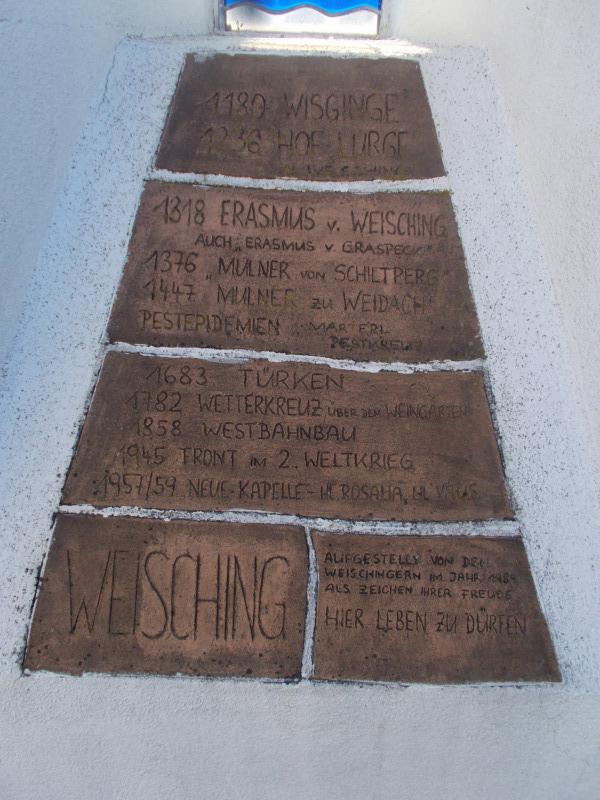 1180 WISGINGE
1236 HOF LURGE
1318 ERASMUS v. WEISCHING
AUCH „ERASMUS v GRASPECK“
1376 „MULNER von SCHILTPERG“
1447 MULNER zu WEIDACH
PESTEPIDEMIEN MARTERL
PESTKREUZ
1683 TÜRKEN
1782 WETTERKREUZ ÜBER DEM WEINGARTEN
1858 WESTBAHNBAU
1945 FRONT IM 2. WELTKRIEG
1957/59 NEUE-KAPELLE- HL ROSALIA, HL VITUS
WEISCHING
AUFGESTELLT VON DEN
WEISCHINGERN IM JAHR 1984
ALS ZEICHEN IHRER FREUDE
HIER LEBEN ZU DÜRFEN